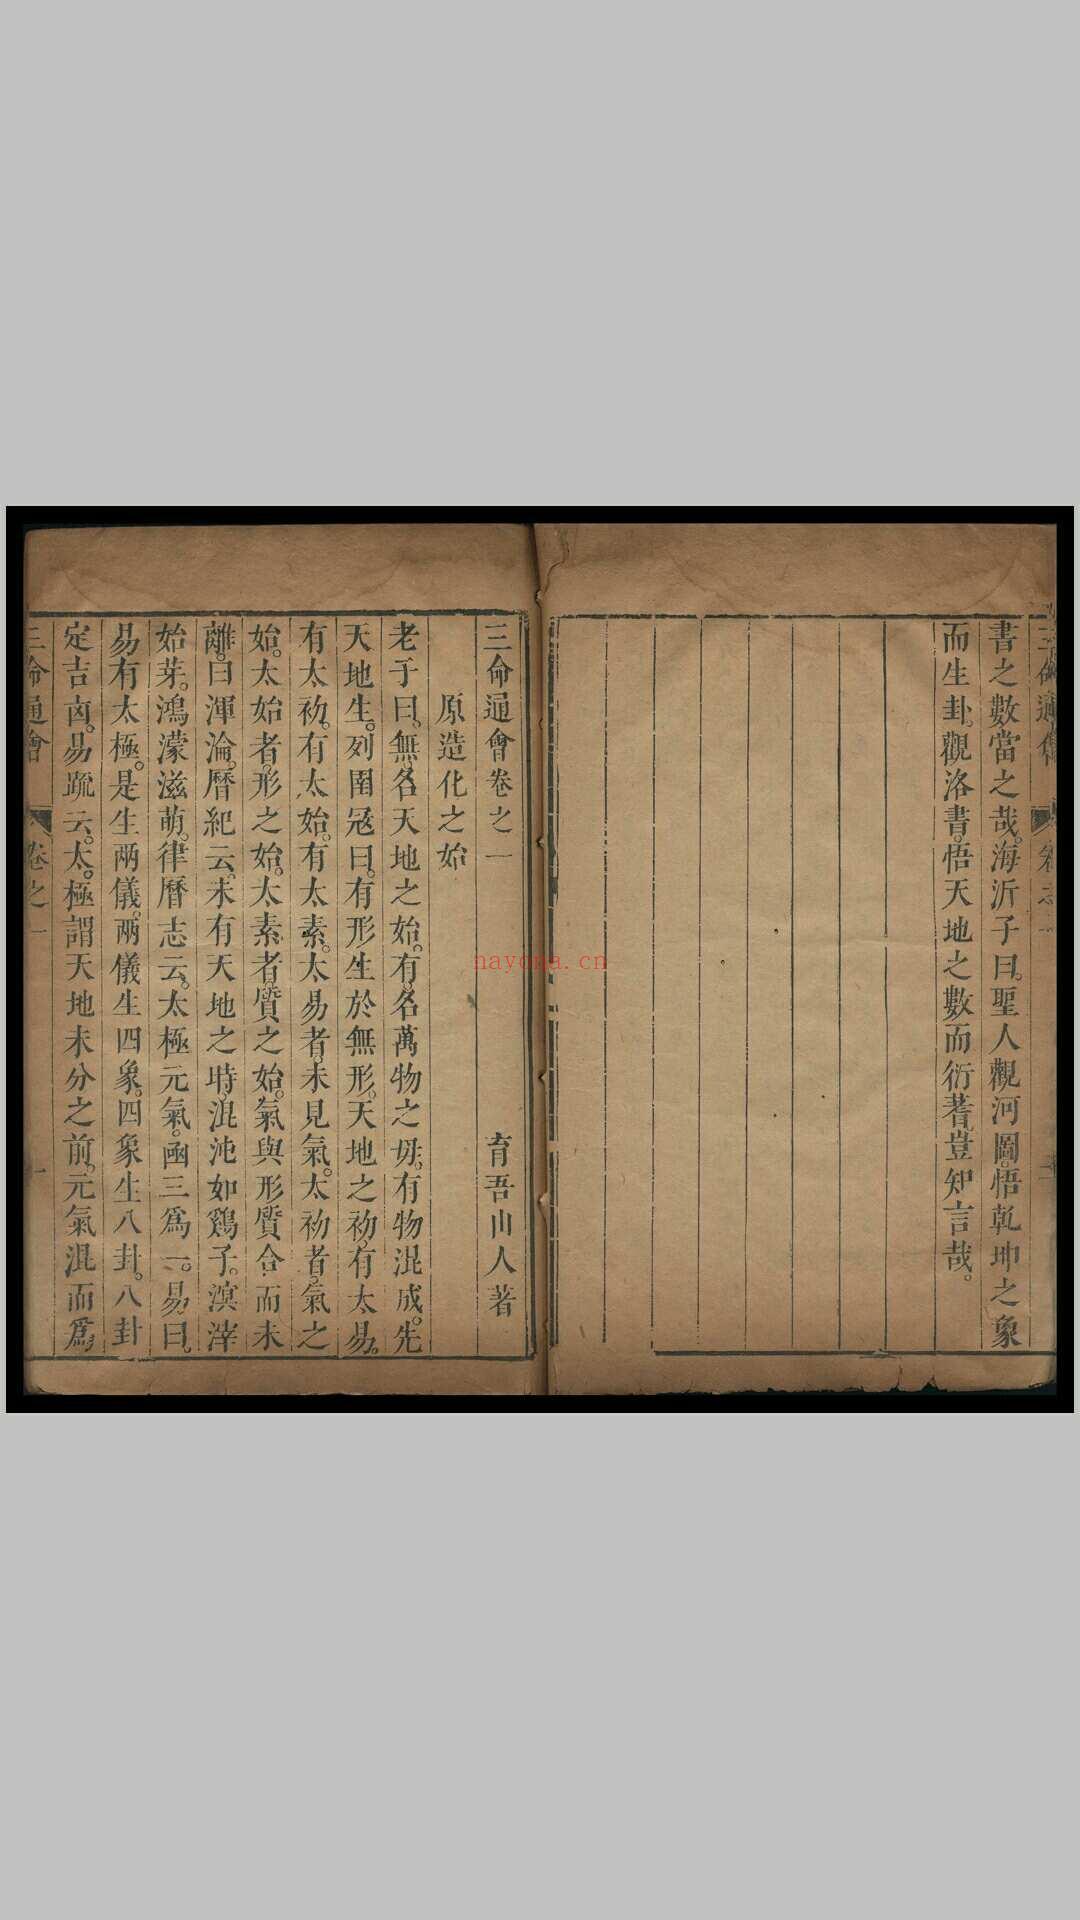 書之數當之哉。海沂子曰。聖人觀河圖。悟乾坤之象
而生卦。觀洛書。悟天地之數而衍蓍。豈知言哉。
三命通會卷之一 育吾山人著
原造化之始
老子曰。無名天地之始。有名萬物之母。有物混成。先
天地生。列圄冦曰。有形生於無形。天地之初。有太易。
有太初。有太始。有太素。太易者。未見氣。太初者。氣之
始。太始者。形之始。太素者。質之始。氣與形質合而未
離。曰渾淪。曆紀云。未有天地之時。混沌如鷄子。溟涬
始芽。鴻濛滋萌。律曆志云。太極元氣。函三爲一。易曰。
易有太極。是生兩儀。兩儀生四象。四象生八卦。八卦
定吉㐫。易疏云。太極謂天地未分之前。元氣混而爲
三命通會 卷之一 一
nayona.cn